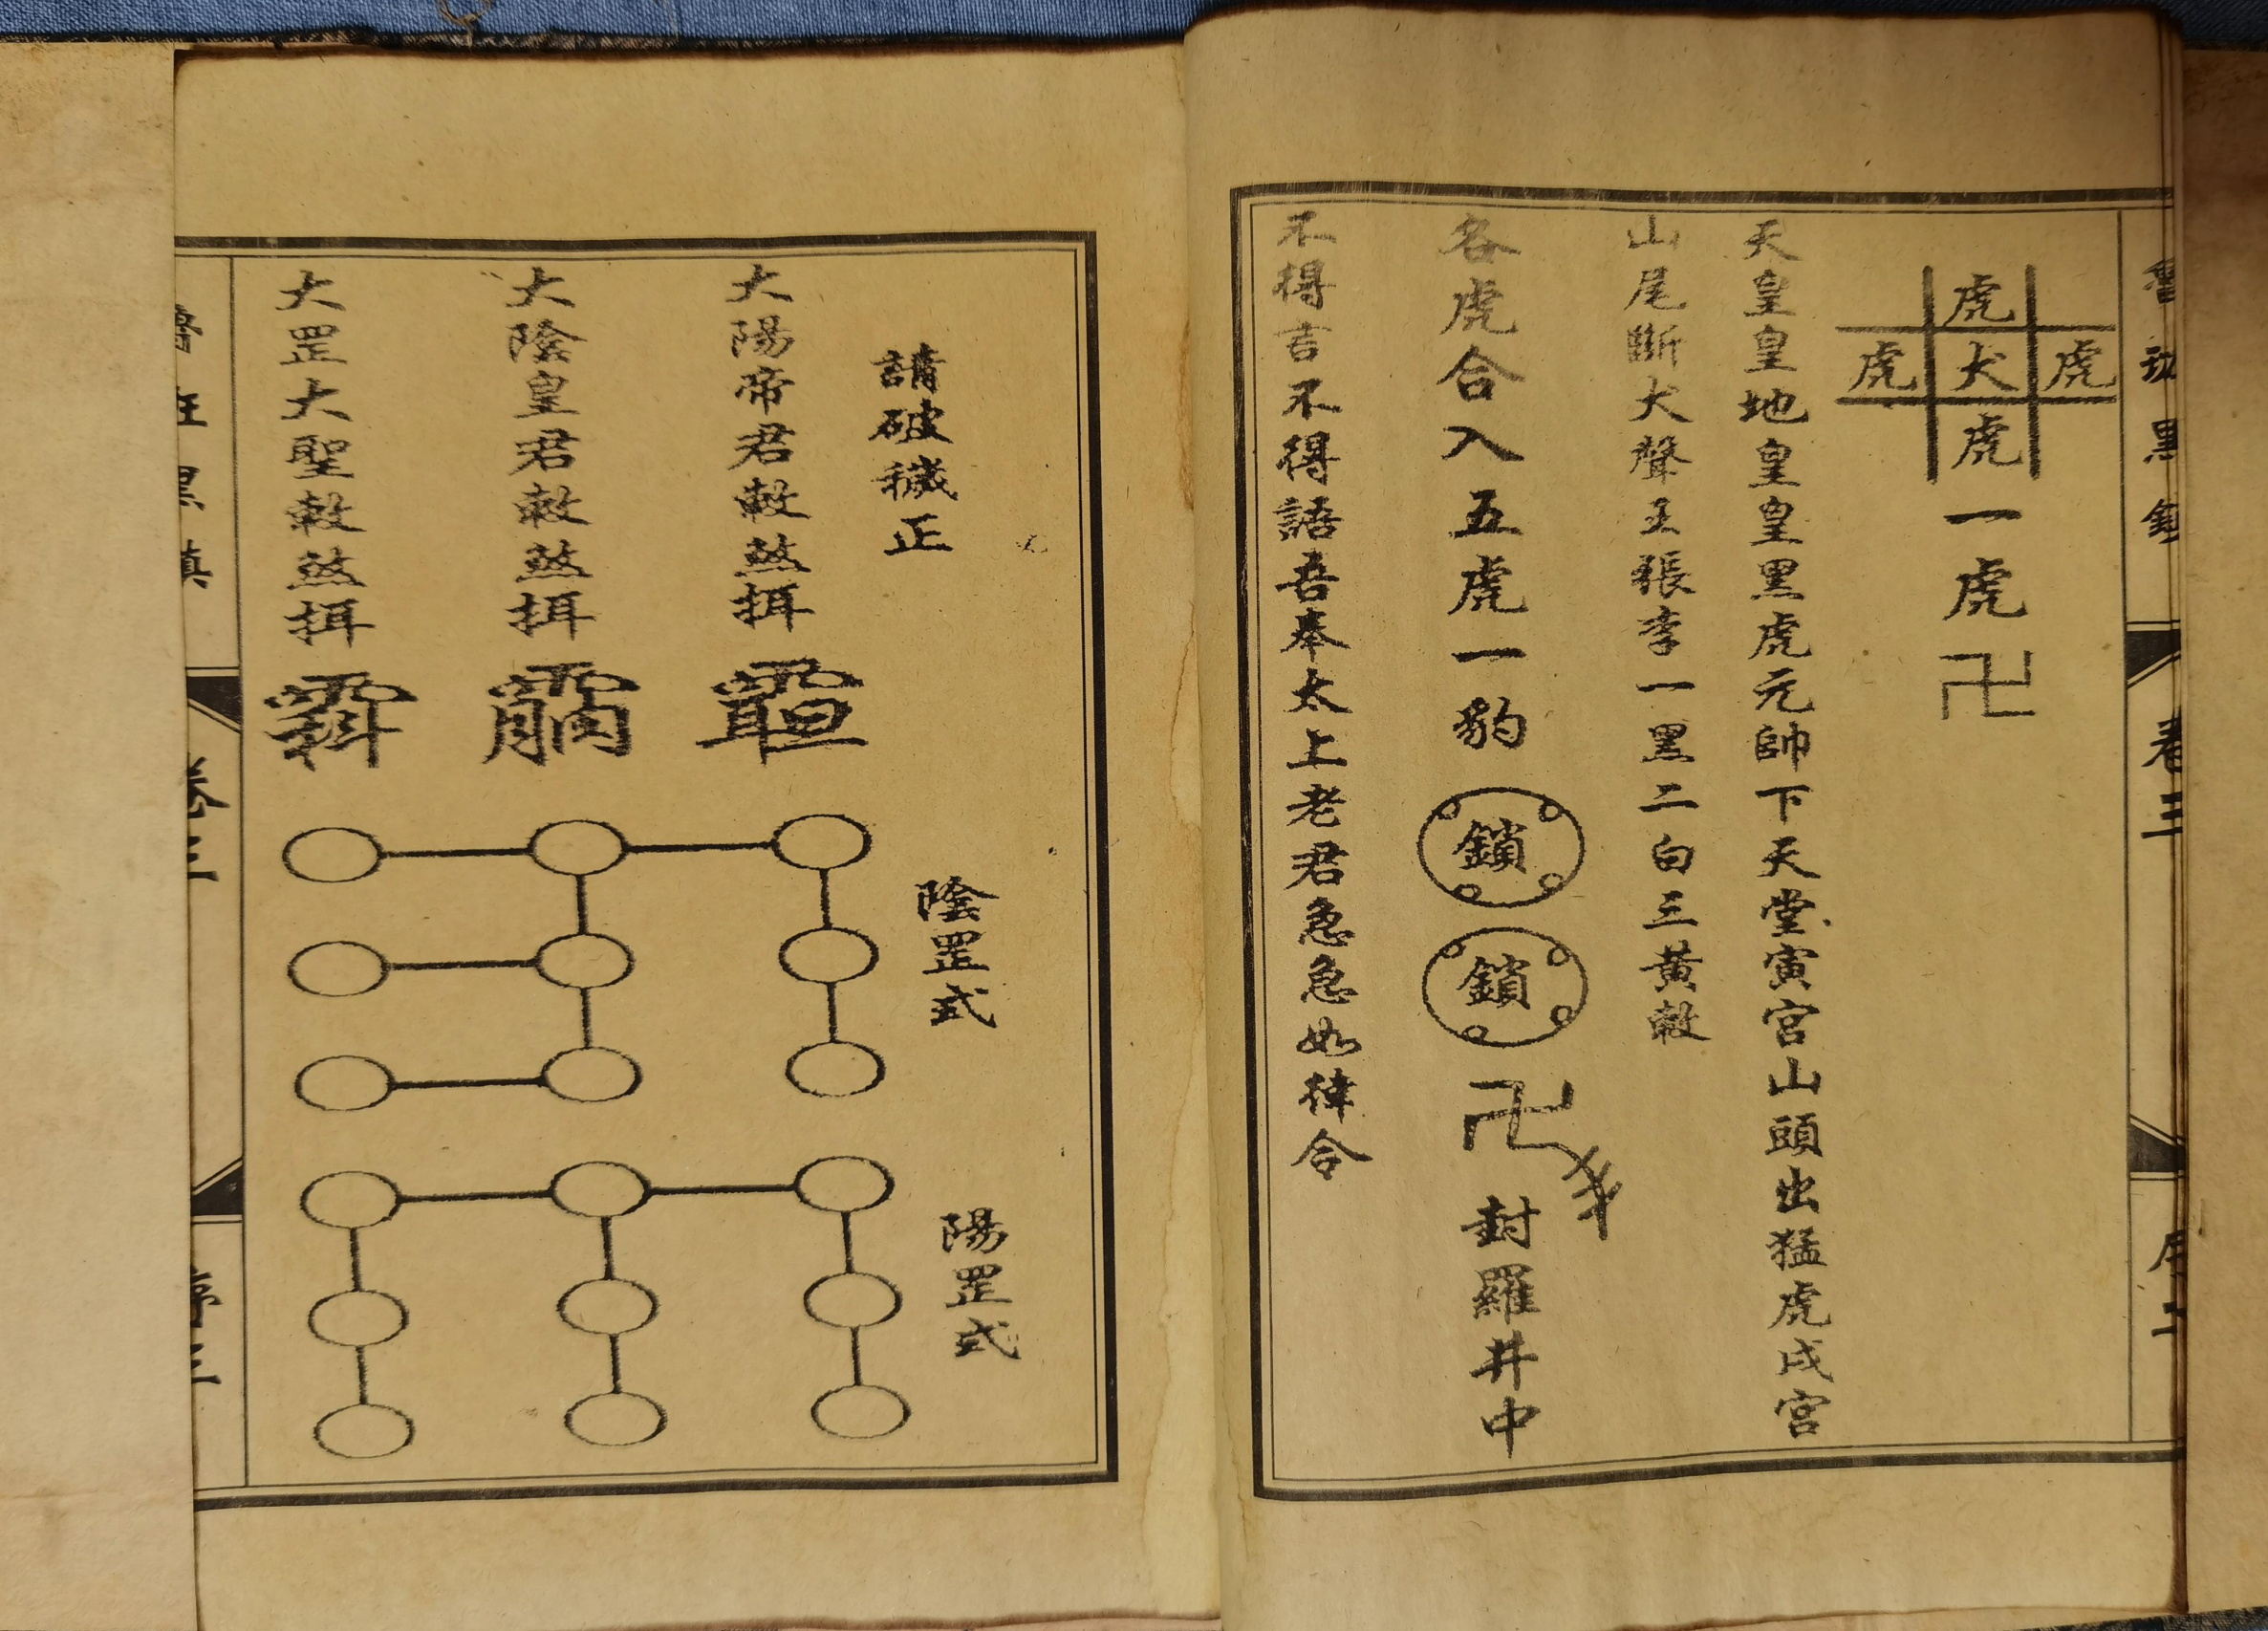 卷三
虎
虎犬虎
虎
一虎卍
天皇皇地皇皇黑虎元帥下天堂寅宮山頭出猛虎戌宮
山尾斷犬聲王張李一黑二白三黃敕
各虎合入五虎一豹鎖鎖卍封羅井中
不得言不得語吾奉太上老君急急如律令
請破穢正
大陽帝君敕煞揖
大陰皇君敕煞揖
大罡大聖敕煞揖
陰罡式
陽罡式